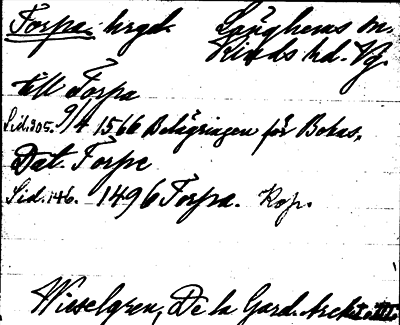 Torpa hrgd. Länghems sn.
Kinds hd. Vg.
till Torpa
Sid. 305. 9/4 1566 Belägringen för Bohus,
Dat. Torpe
Sid. 146. 1496 Torpa. Kop.
Wieselgren, De la Gard. Archiv